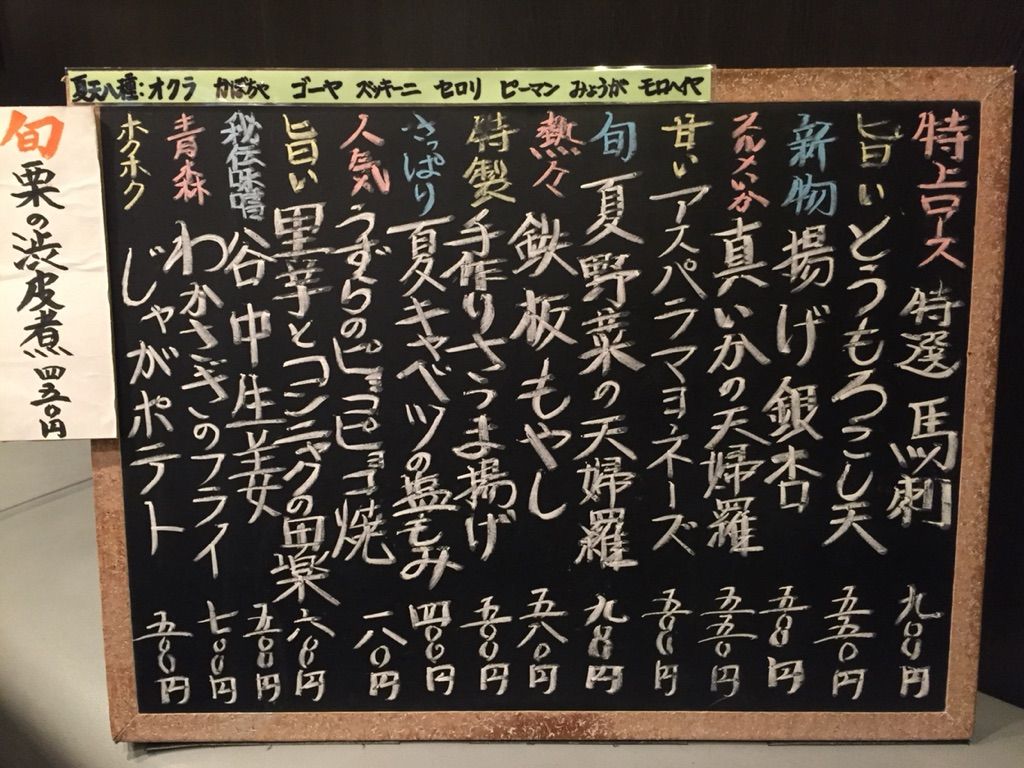 夏天八種：オクラ かぼちゃ ゴーヤ ズッキーニ セロリ ピーマン みょうが モロヘイヤ
特上ロース 特選 馬刺 九〇〇円
旨い とうもろこし天 五五〇円
新物 揚げ銀杏 五〇〇円
スルメいか 真いかの天婦羅 五五〇円
甘い アスパラマヨネーズ 五〇〇円
旬 夏野菜の天婦羅 九八〇円
熱々 鉄板もやし 五八〇円
特製 手作りさつま揚げ 五〇〇円
さっぱり 夏キャベツの塩もみ 四〇〇円
人気 うずらのピョコピョコ焼 一八〇円
旨い 里芋とコンニャクの田楽 六〇〇円
秘伝味噌 谷中生姜 五〇〇円
青森 わかさぎのフライ 七〇〇円
ホクホク じゃがポテト 五〇〇円
旬 栗の渋皮煮 四五〇円